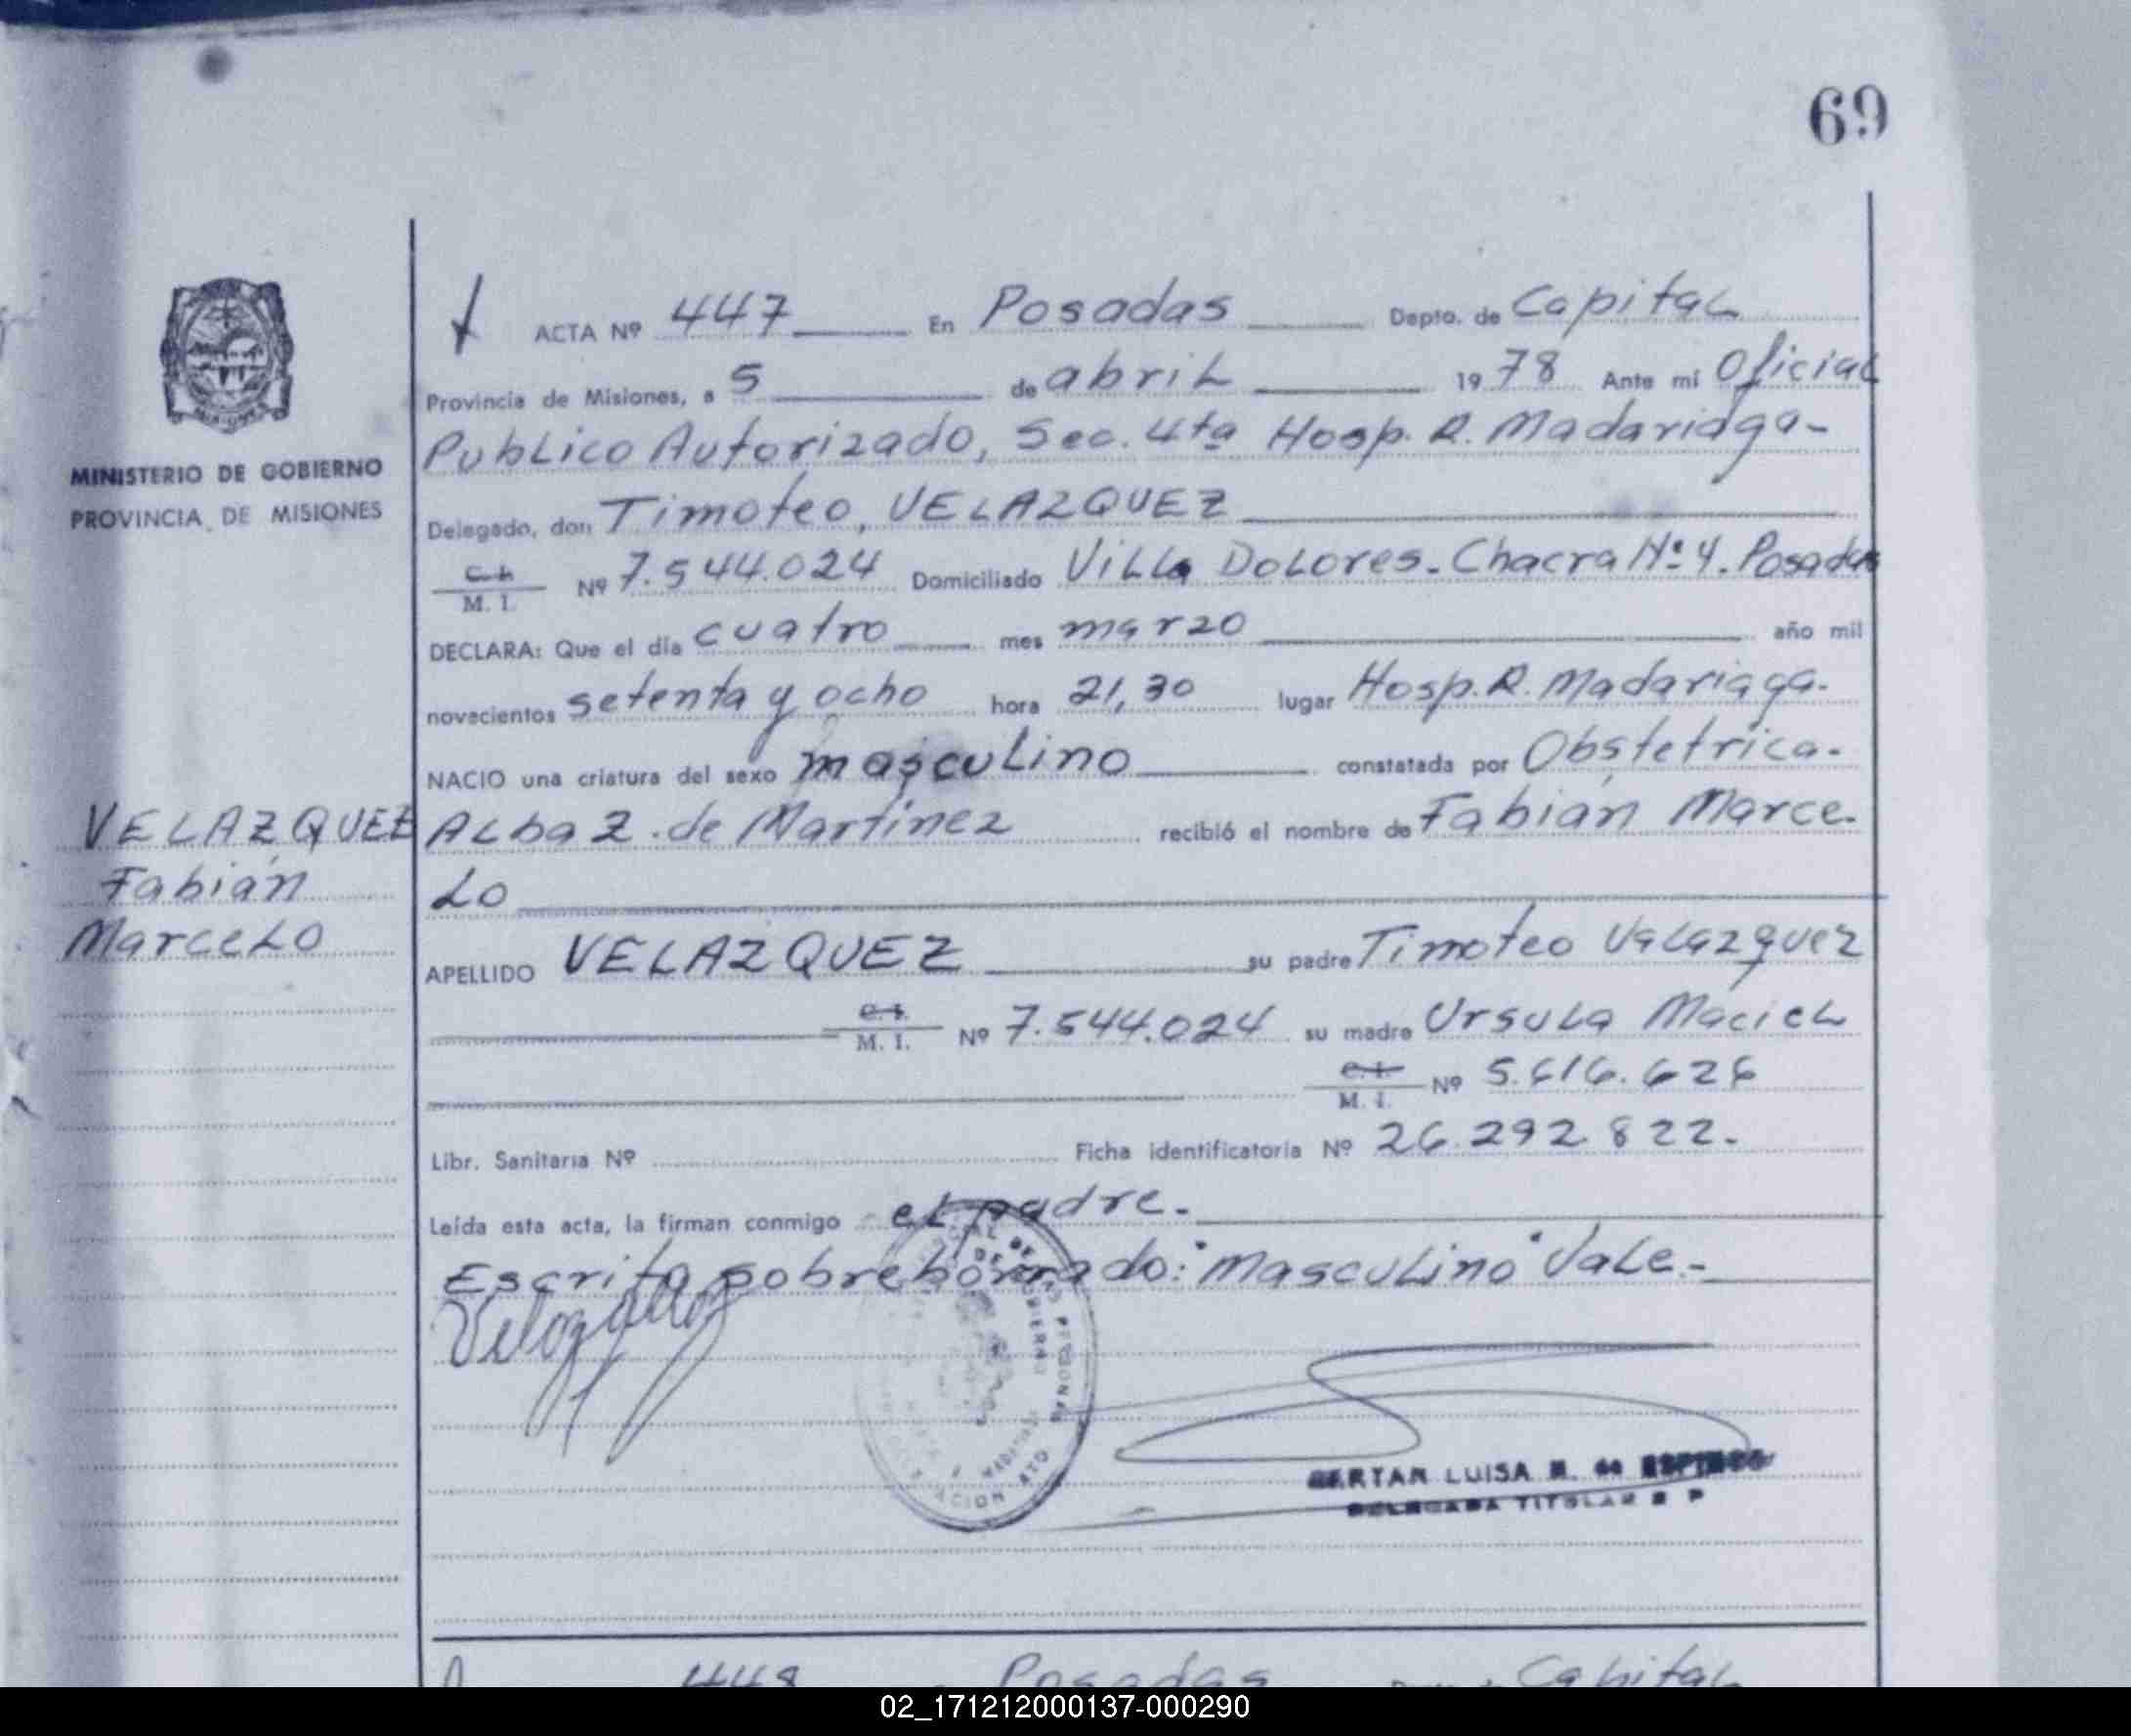 69
ACTA Nº 447 En Posadas Depto. de Capital
Provincia de Misiones, a 5 de abril 1978 Ante mí Oficial
Publico Autorizado, Sec. 4ta Hosp. R. Madariaga-
MINISTERIO DE GOBIERNO
PROVINCIA DE MISIONES
Delegado, don Timoteo, VELAZQUEZ
C.I.
M. I. Nº 7.544.024 Domiciliado Villa Dolores. Chacra Nº 4. Posadas
DECLARA: Que el día cuatro mes marzo año mil
novecientos setenta y ocho hora 21,30 lugar Hosp. R. Madariaga.
NACIO una criatura del sexo masculino constatada por Obstetrica.
VELAZQUEZ
Fabián
Marcelo
Alba Z. de Martinez recibió el nombre de Fabián Marce-
lo
APELLIDO VELAZQUEZ su padre Timoteo Valazquez
C.I.
M. I. Nº 7.544.024 su madre Ursula Maciel
C.I.
M. I. Nº 5.616.626
Libr. Sanitaria Nº Ficha identificatoria Nº 26.292.822.
Leída esta acta, la firman conmigo el padre.
Escrito sobreborrado: "masculino" Vale.-
LUISA
DELEGADA TITULAR
448 Posadas Capital
02_171212000137-000290